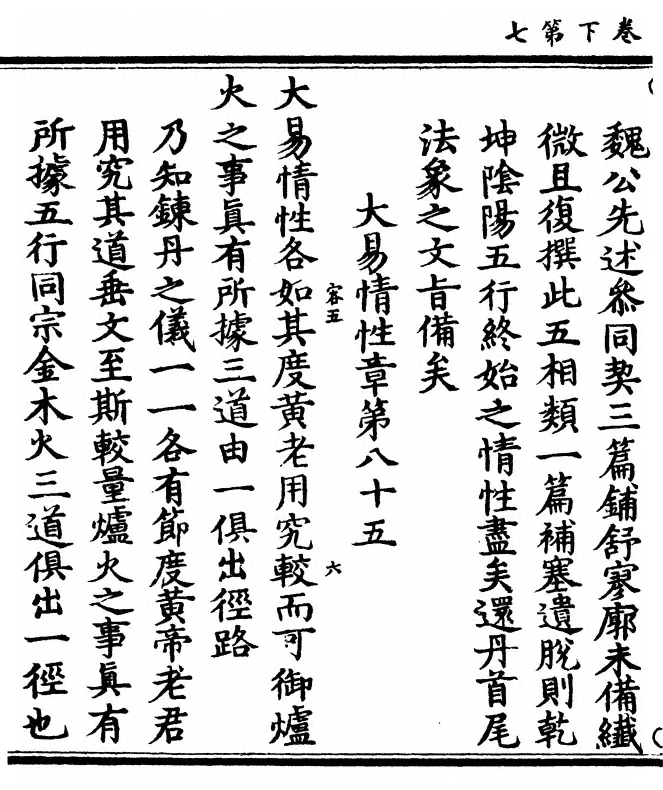 卷下第七
魏公先述叅同契三篇鋪舒寥廓未備纖
微且復撰此五相類一篇補塞遺脫則乾
坤陰陽五行終始之情性盡矣還丹首尾
法象之文旨備矣
大易情性章第八十五
容五
六
大易情性各如其度黃老用究較而可御爐
火之事眞有所據三道由一俱出徑路
乃知鍊丹之儀一一各有節度黃帝老君
用究其道垂文至斯較量爐火之事眞有
所據五行同宗金木火三道俱出一徑也